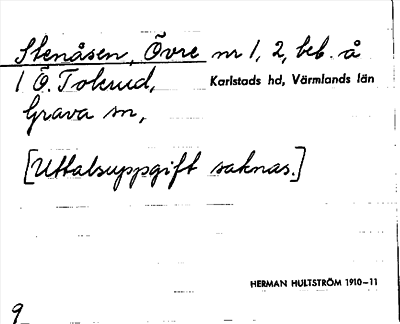 Stenåsen, Övre nr 1, 2, beb. å
1 Ö. Tolerud, Karlstads hd, Värmlands län
Grava sn,
[Uttalsuppgift saknas.]
HERMAN HULTSTRÖM 1910-11
9